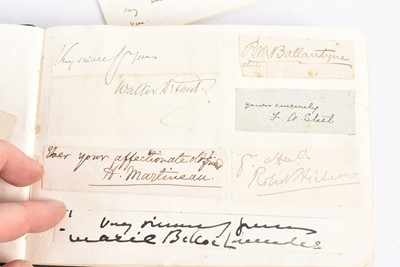 Very sincerely yours
Walter Besant
R M Ballantyne
yours sincerely
F. A. Steel
Ever your affectionate old friend
H. Martineau
Robert Hichens
Very sincerely yours
Marie Belloc Lowndes